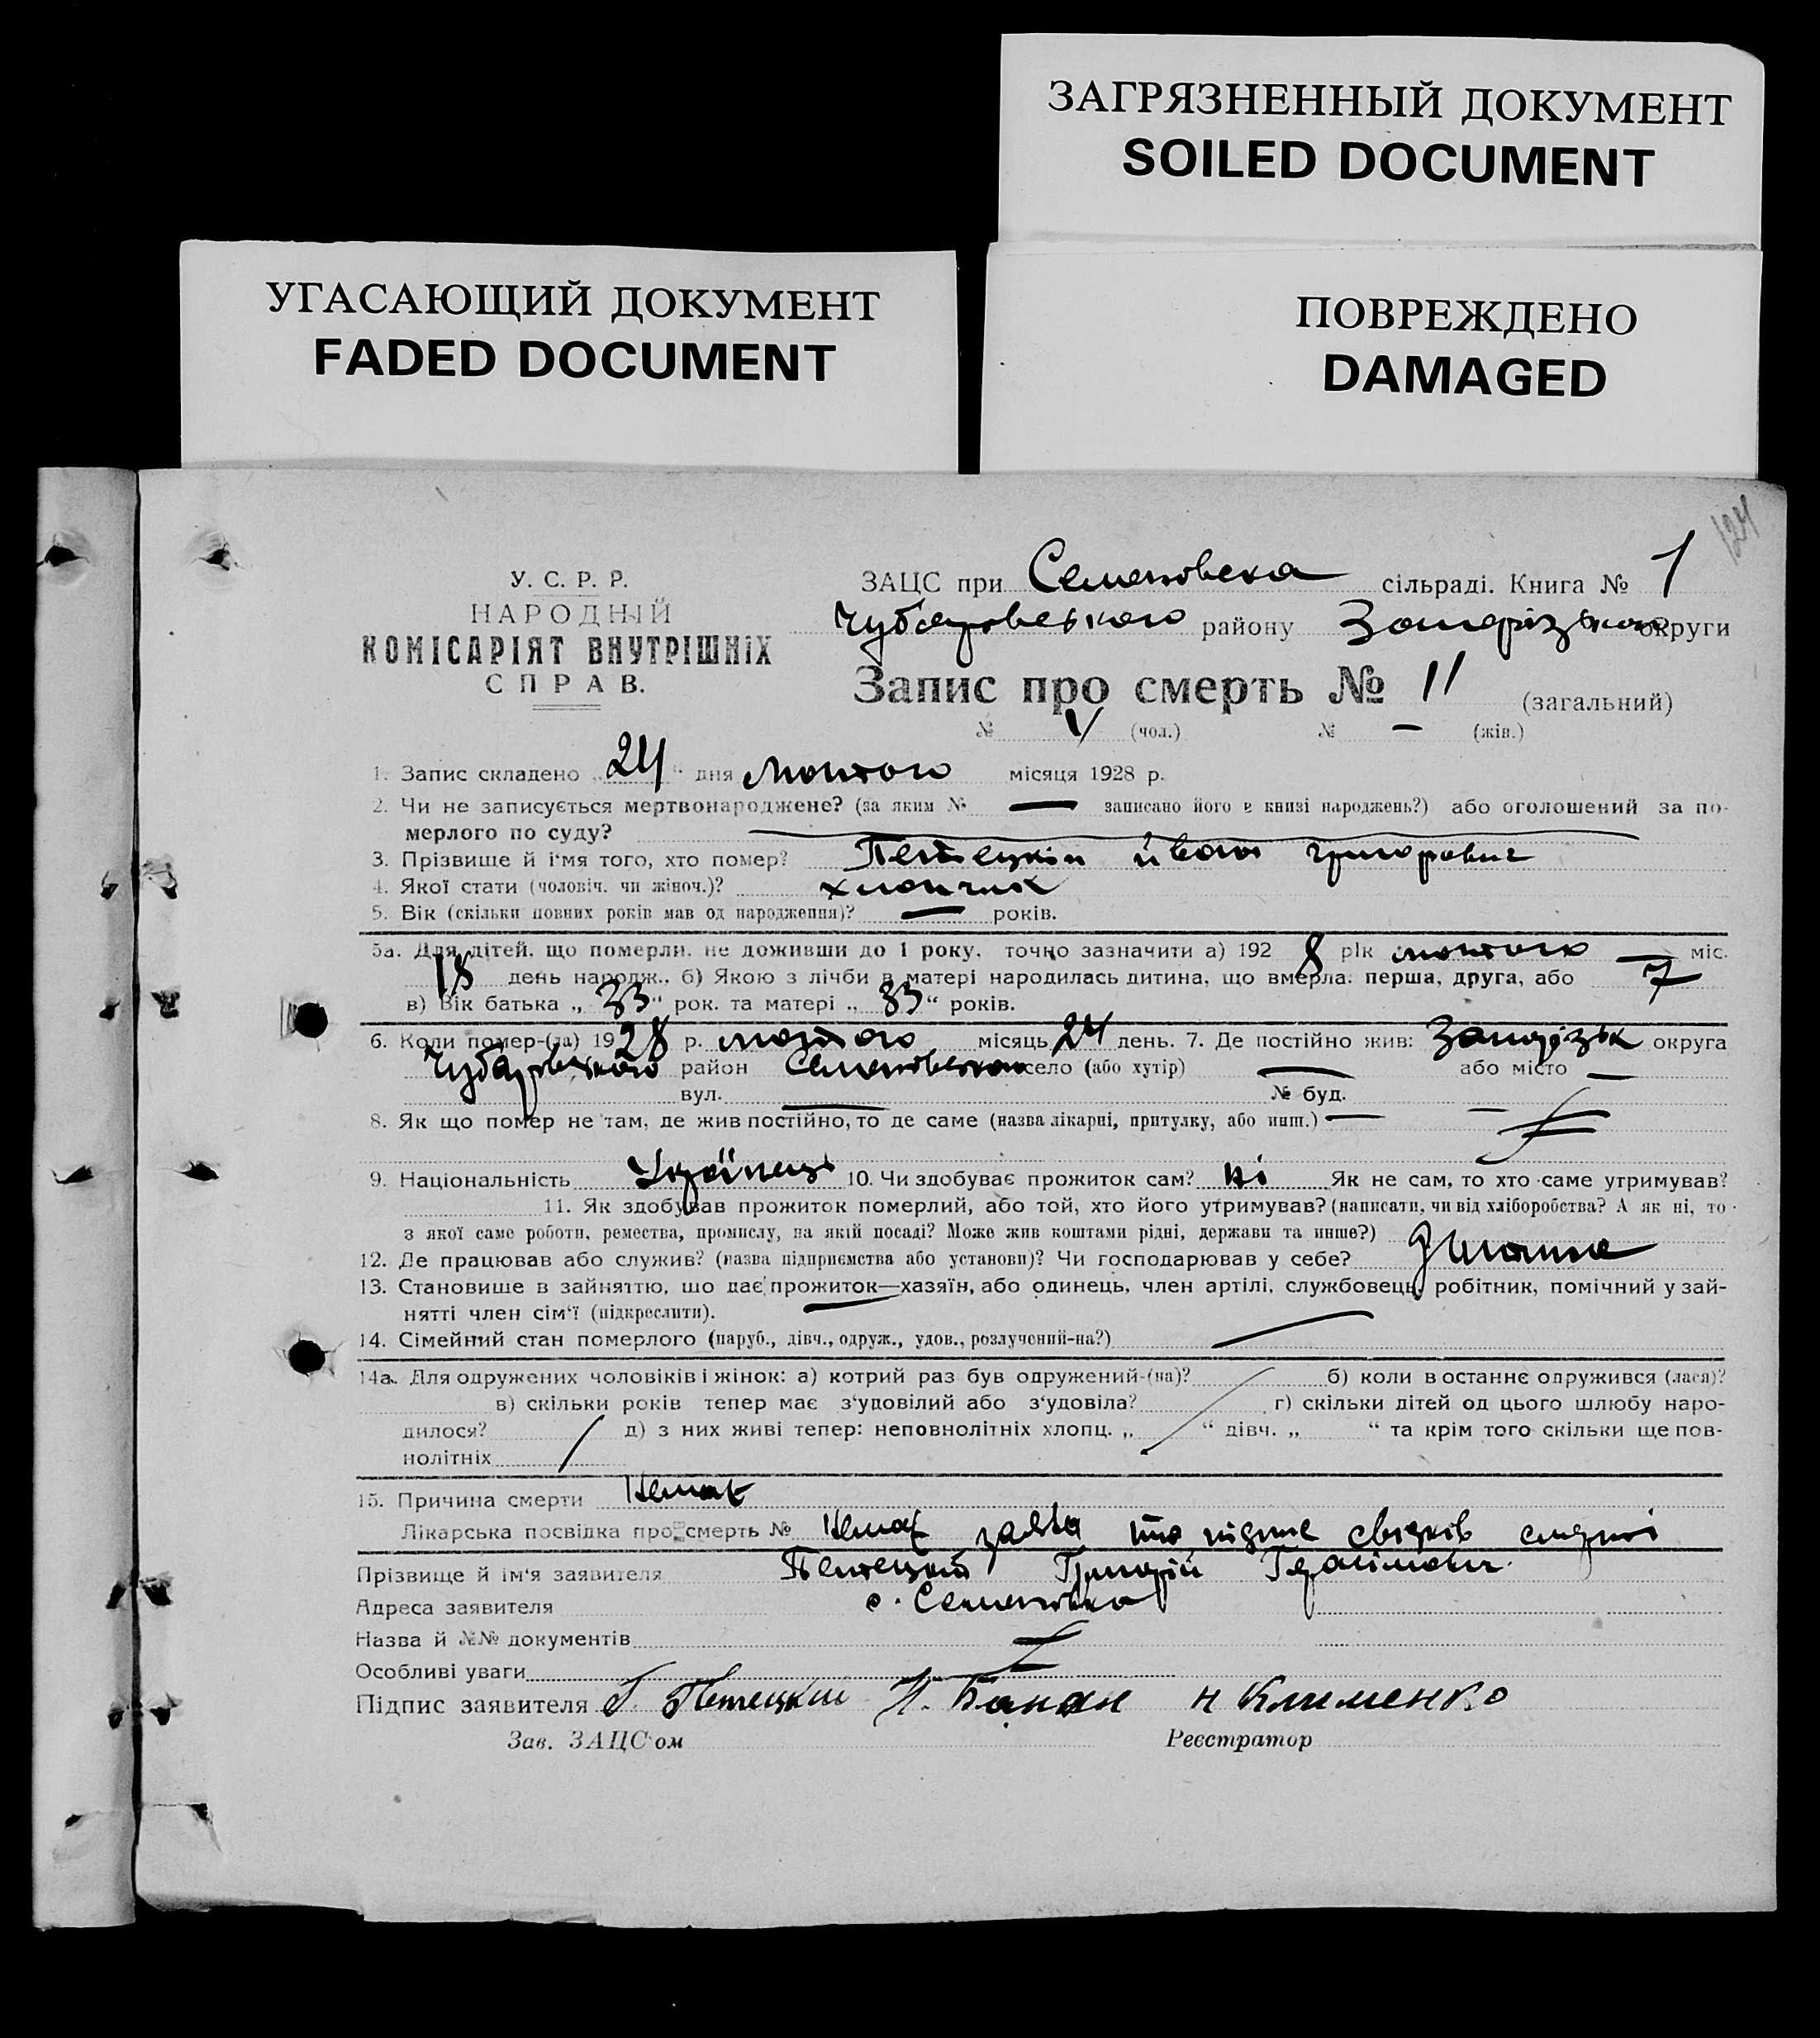 ЗАГРЯЗНЕННЫЙ ДОКУМЕНТ
SOILED DOCUMENT
УГАСАЮЩИЙ ДОКУМЕНТ
FADED DOCUMENT
ПОВРЕЖДЕНО
DAMAGED
124
У. С. Р. Р.
НАРОДНІЙ
КОМІСАРІЯТ ВНУТРІШНІХ
СПРАВ.
ЗАЦС при Семеновска сільраді. Книга № 1
Чубаровського району Запорізького округи
Запис про смерть № 11 (загальний)
№ V (чол.) № — (жін.)
1. Запис складено „24“ дня лютого місяця 1928 р.
2. Чи не записується мертвонароджене? (за яким № — записано його в книзі народжень?) або оголошений за по-
мерлого по суду?
3. Прізвище й і'мя того, хто помер? йван григорович
4. Якої стати (чоловіч. чи жіноч.)? хлопчик
5. Вік (скільки повних років мав од народження)? — років.
5а. Для дітей, що померли, не доживши до 1 року, точно зазначити а) 192 8 рік лютого — міс.
18 день народж., б) Якою з лічби в матері народилась дитина, що вмерла: перша, друга, або 7
в) Вік батька „33“ рок. та матері „33“ років.
6. Коли помер-(ла) 1928 р. лютого місяць 24 день. 7. Де постійно жив: Запорізьк округа
Чубаровського район село (або хутір) — або місто —
вул. — № буд. —
8. Як що помер не там, де жив постійно, то де саме (назва лікарні, притулку, або инш.) —
9. Національність Українець 10. Чи здобуває прожиток сам? ні Як не сам, то хто саме утримував?
11. Як здобував прожиток померлий, або той, хто його утримував? (написати, чи від хліборобства? А як ні, то
з якої саме роботи, ремества, промислу, на якій посаді? Може жив коштами рідні, держави та инше?)
12. Де працював або служив? (назва підприємства або установи)? Чи господарював у себе?
13. Становище в зайняттю, що дає прожиток—хазяїн, або одинець, член артілі, службовець, робітник, помічний у зай-
нятті член сім'ї (підкреслити).
14. Сімейний стан померлого (паруб., дівч., одруж., удов., розлучений-на?)
14а. Для одружених чоловіків і жінок: а) котрий раз був одружений-(на)? б) коли в останнє одружився (лася)?
в) скільки років тепер має з'удовілий або з'удовіла? г) скільки дітей од цього шлюбу наро-
дилося? д) з них живі тепер: неповнолітніх хлопц. „ “ дівч. „ “ та крім того скільки ще пов-
нолітніх
15. Причина смерти Немає
Лікарська посвідка про смерть № Немає заява свідків смерті
Прізвище й ім'я заявителя Григорій Герасімович
Адреса заявителя с. Семеновка
Назва й №№ документів
Особливі уваги
Підпис заявителя Г. Петецкий Н. Клименко
Зав. ЗАЦС'ом Реєстратор